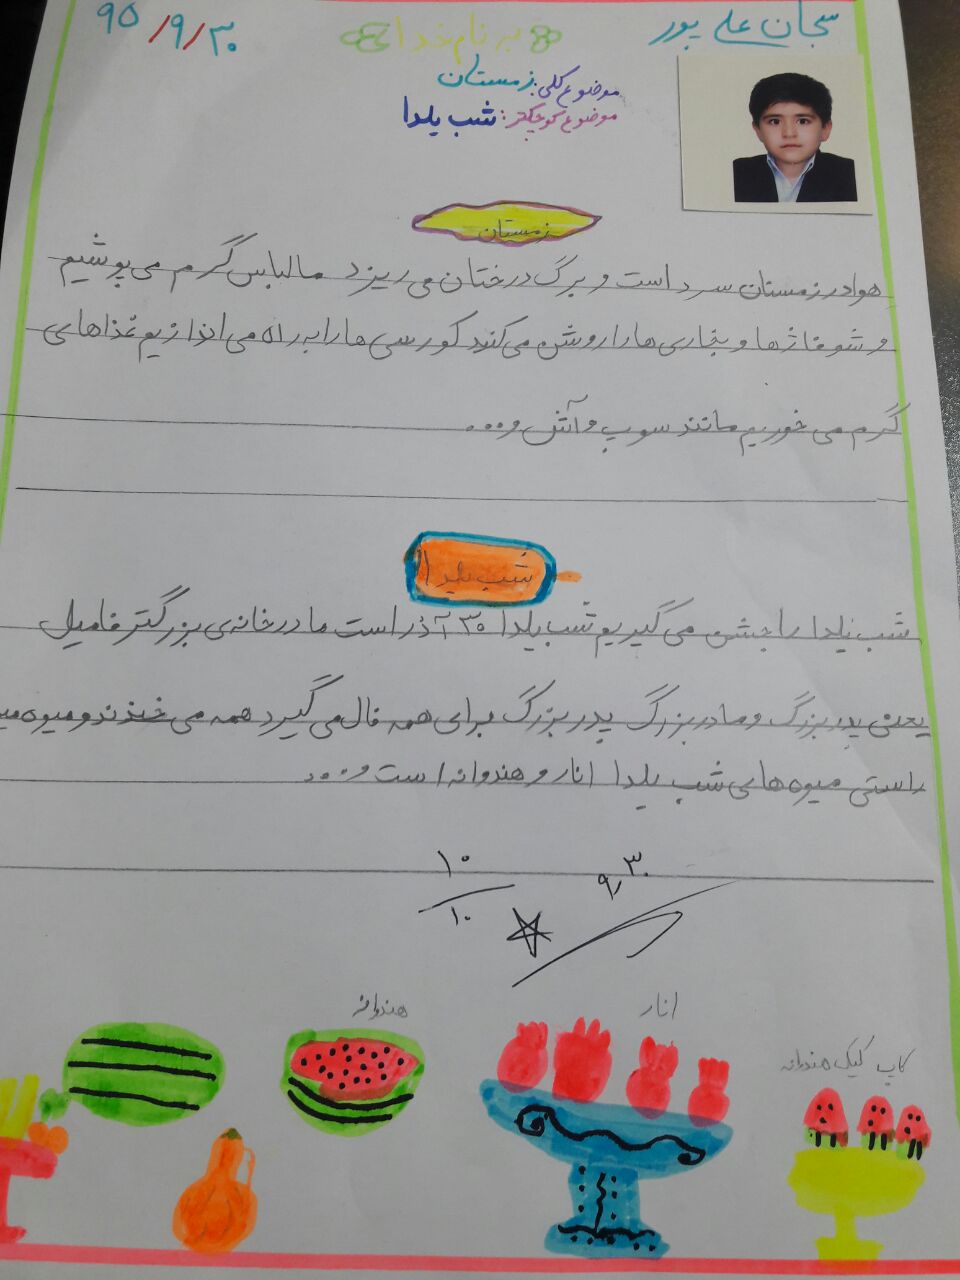 سبحان علی پور
به نام خدا
۹۵/۹/۳۰
موضوع کلی: زمستان
موضوع کوچکتر: شب یلدا
زمستان
هوا در زمستان سرد است و برگ درختان می ریزد ما لباس گرم می پوشیم
و شوفاژها و بخاری ها را روشن می کنند کورسی ها را به راه می اندازیم غذاهای
گرم می خوریم مانند سوپ و آش و...
شب یلدا
شب یلدا را جشن می گیریم شب یلدا ۳۰ آذر است ما در خانه ی بزرگتر فامیل
یعنی پدربزرگ و مادربزرگ پدربزرگ برای همه فال می گیرد همه می خندند و میوه
راستی میوه های شب یلدا انار و هندوانه است و...
۱۰
۱۰
۹/۳۰
هندوانه
انار
کاپ کیک هندوانه